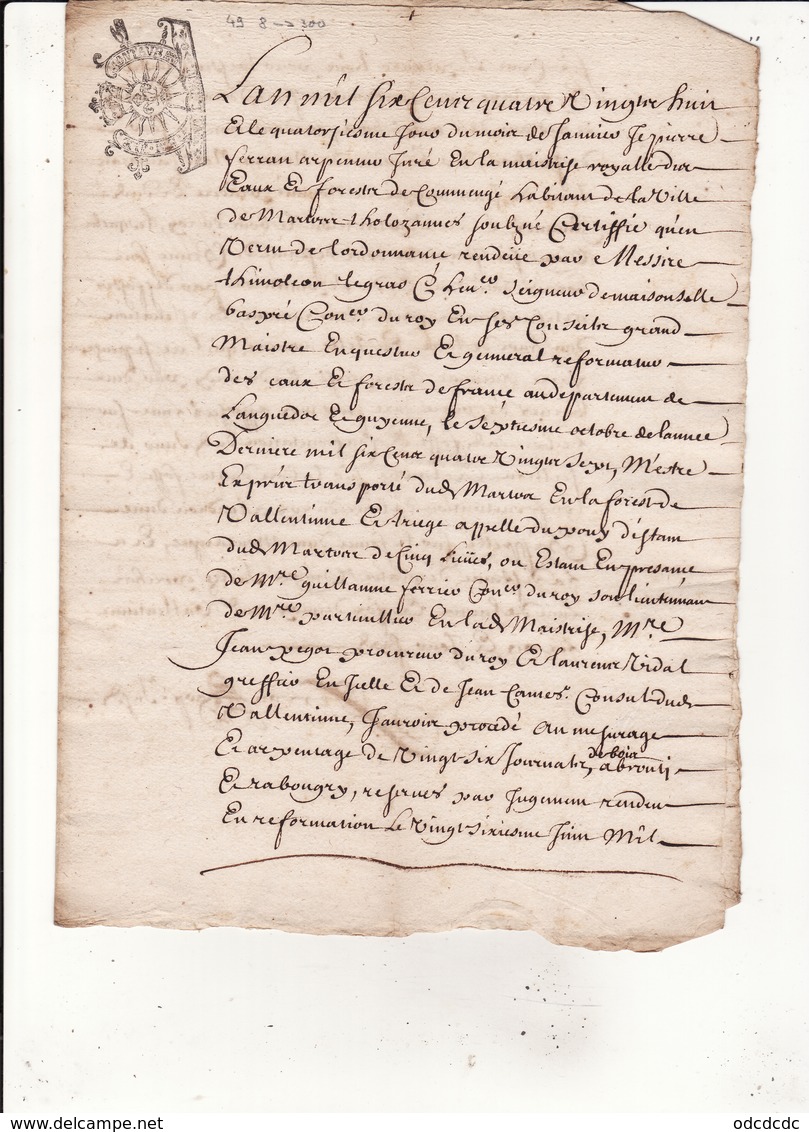 49 8 -> 300
MONTAUBAN
Lan mil six Cens quatre Vingts huit
Et le quatorsiesme Jour du mois de Janvier Je pierre
ferran arpenteur Juré En la maistrise royalle des
Eaux Et forests de Commenge habitant de la Ville
de Martres tholozannes soubzné Certiffie qu'en
Vertu de l'ordonnance rendeüe par Messire
thimoleon legras Seigneur de maisonselle
baspré Con.er du roy En ses Conseils grand
Maistre Enquesteur Et general reformateur
des eaux Et forests de france au departement de
Languedoc Et guyenne, le septiesme octobre de lannee
Derniere mil six Cens quatre Vingts sept, M'estre
Exprès transporté dud Martres En la forest de
Vallentinne Et triege appellé du pouy d'estam
dud Martres de Cinq Lieües, ou Estant En presance
de M.re guillaume ferrier Con.er du roy son lieutenant
de M.re particullier En lad Maistrise, M.re
Jean pegot procureur du roy Et laurens Vidal
greffier En Icelle Et de Jean Cames Consul dud
Vallentinne, Jaurois procédé au mesurage
Et arpentage de Vingt six Journals, de bois abrouti
Et rabougry, reserves par Jugement rendeu
En reformation Le Vingt sixiesme Juin Mil
odcdcdc